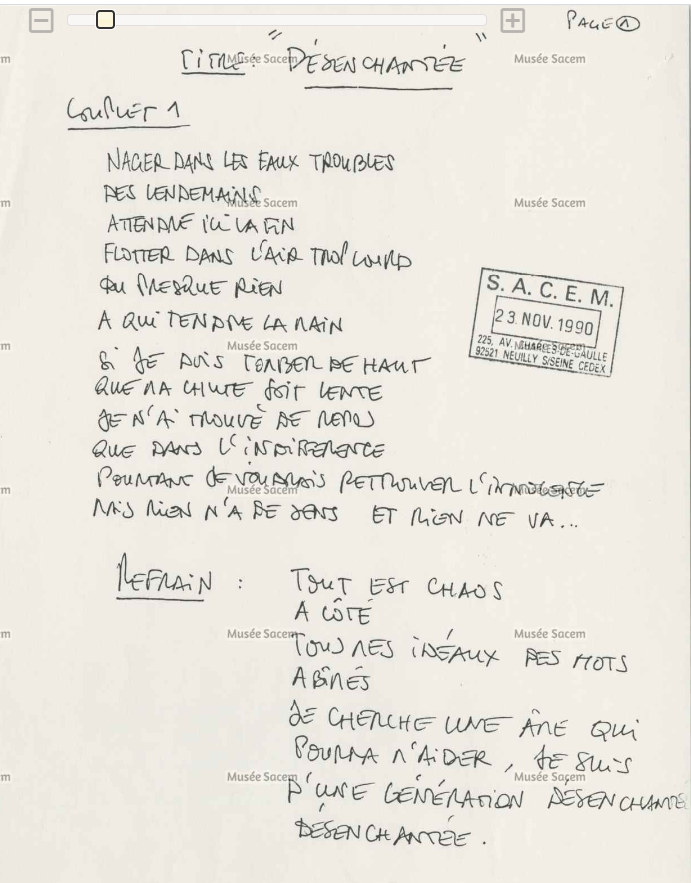 PAGE 1
TITRE : "DÉSENCHANTÉE"
COUPLET 1
NAGER DANS LES EAUX TROUBLES
DES LENDEMAINS
ATTENDRE ICI LA FIN
FLOTTER DANS L'AIR TROP LOURD
DU PRESQUE RIEN
A QUI TENDRE LA MAIN
SI JE DOIS TOMBER DE HAUT
QUE MA CHUTE SOIT LENTE
JE N'AI TROUVÉ DE REPOS
QUE DANS L'INDIFFERENCE
POURTANT JE VOUDRAIS RETROUVER L'INNOCENCE
MAIS RIEN N'A DE SENS ET RIEN NE VA...
REFRAIN : TOUT EST CHAOS
A CÔTÉ
TOUS MES IDÉAUX DES MOTS
ABÎMÉS
JE CHERCHE UNE ÂME QUI
POURRA M'AIDER, JE SUIS
D'UNE GÉNÉRATION DÉSENCHANTÉE
DÉSENCHANTÉE.
S. A. C. E. M.
23 NOV. 1990
225, AV. CHARLES-DE-GAULLE
92521 NEUILLY S/SEINE CEDEX
Musée Sacem